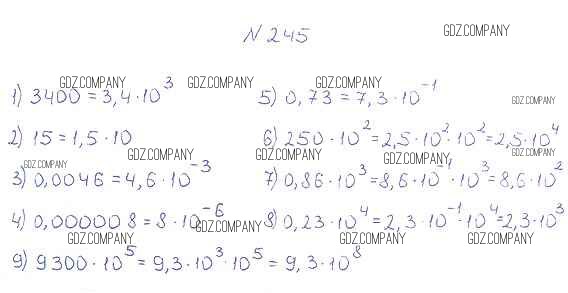 N 245
GDZ.COMPANY
GDZ.COMPANY GDZ.COMPANY GDZ.COMPANY
1) 3400 = 3,4 · 10³ 5) 0,73 = 7,3 · 10⁻¹
GDZ.COMPANY
2) 15 = 1,5 · 10 6) 250 · 10² = 2,5 · 10² · 10² = 2,5 · 10⁴
GDZ.COMPANY GDZ.COMPANY GDZ.COMPANY GDZ.COMPANY GDZ.COMPANY
3) 0,0046 = 4,6 · 10⁻³ 7) 0,86 · 10³ = 8,6 · 10⁻¹ · 10³ = 8,6 · 10²
4) 0,000008 = 8 · 10⁻⁶ 8) 0,23 · 10⁴ = 2,3 · 10⁻¹ · 10⁴ = 2,3 · 10³
GDZ.COMPANY GDZ.COMPANY GDZ.COMPANY GDZ.COMPANY
9) 9300 · 10⁵ = 9,3 · 10³ · 10⁵ = 9,3 · 10⁸